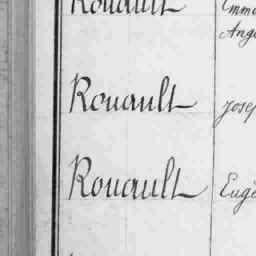 Rouault
Ang
Rouault Jose
Rouault Eugè